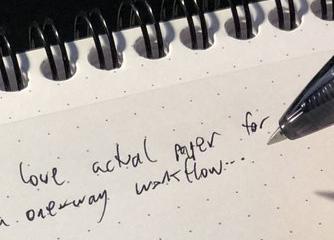 love actual paper for
a one-way workflow...